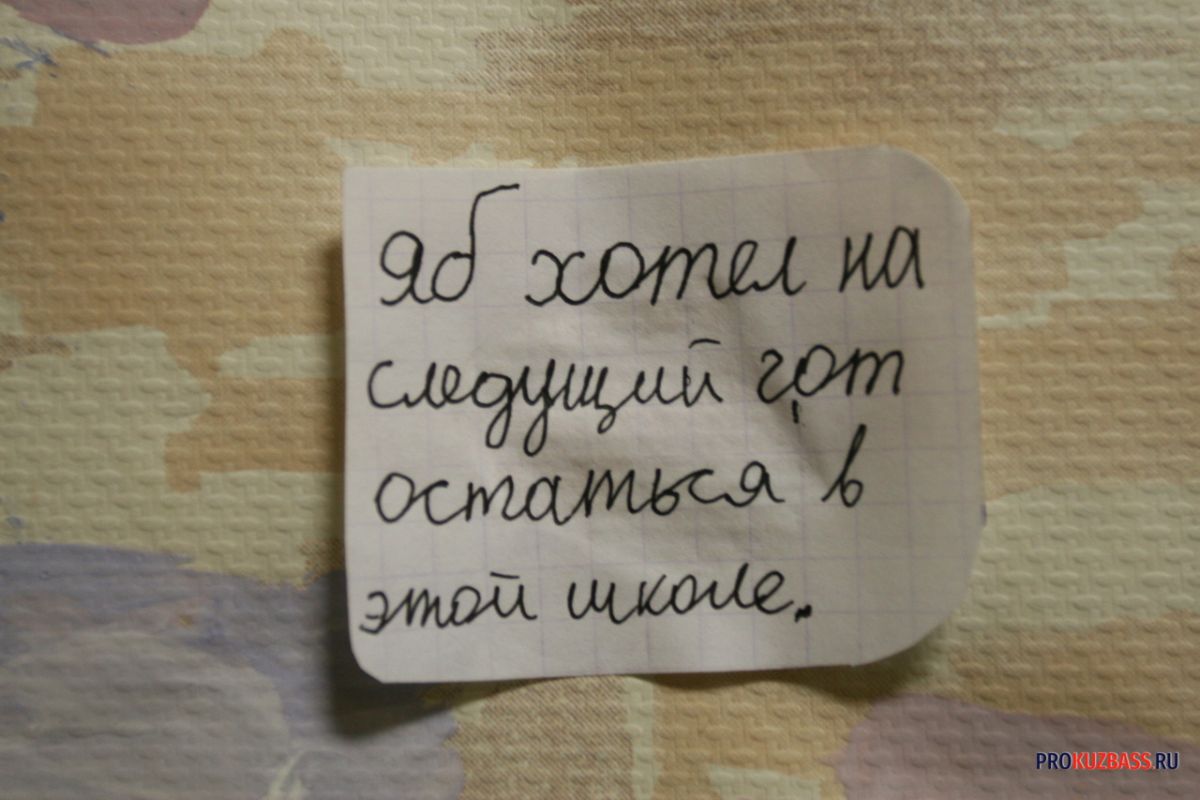 Яб хотел на
следущий гот
остаться в
этой школе.
PROKUZBASS.RU